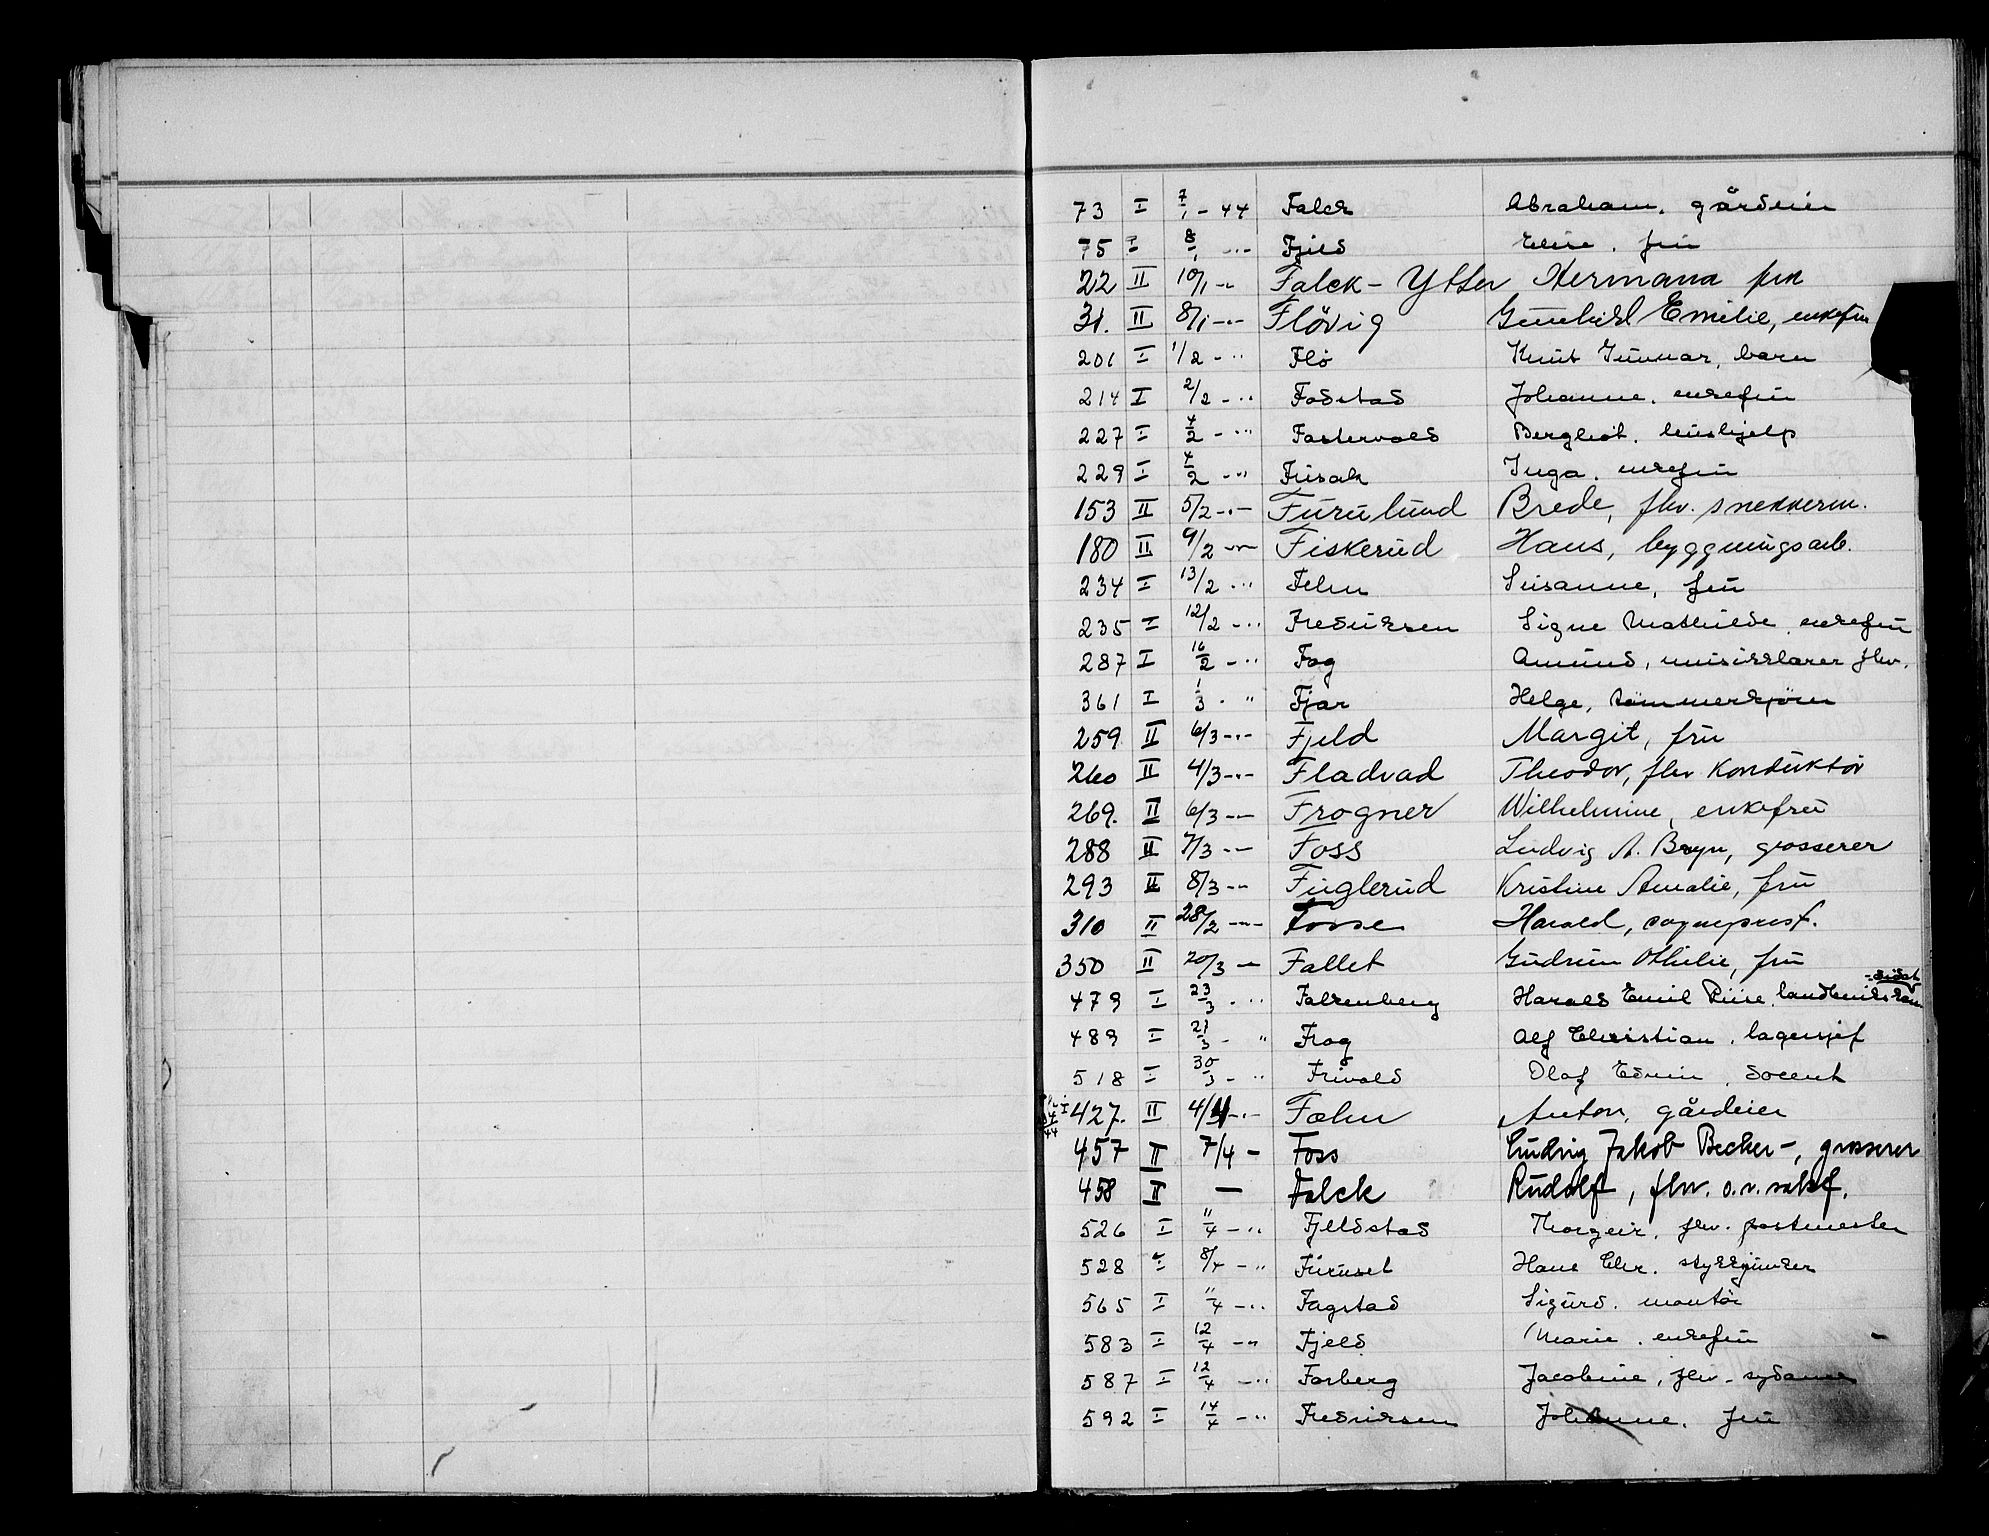 73 I 7/1 - 44 Falck Abraham, gårdeier
75 I 8/1 - " - Fjeld Elise, fru
22 II 10/1 - " Falck - Ytter Hermana frk
31. II 8/1 - " - Flövig Gunhild Emilie, enkefru
201 I 1/2 - " Flø Knut Gunnar, barn
214 I 2/2 - " Fodstad Johanne, enkefru
227 I 4/2 - " Fastervold Bergliot, hushjelp
229 I 4/2 - " Fusak Inga, enkefru
153 II 5/2 - " - Furulund Brede, fhv. snekkerm.
180 II 9/2 - " - Fiskerud Hans, bygningsarb.
234 I 13/2 - " Fehn Susanne, fru
235 I 12/2 - " Fredriksen Signe Mathilde, enkefru
287 I 16/2 - " Fog Amund, musikklærer fhv.
361 I 1/3 - " Fjær Helge, tømmerkjører
259 II 6/3 - " - Fjeld Margit, fru
260 II 4/3 - " - Fladvad Theodor, fhv konduktör
269. II 6/3 - " - Frogner Wilhelmine, enkefru
288 II 7/3 - " - Foss Ludvig A. Bryn, grosserer
293 II 8/3 - " - Fuglerud Kristine Amalie, fru
310 II 28/2 - " - Fosse Harald, sogneprest.
350 II 20/3 - Fallet Gudrun Othilie, fru
479 I 23/3 - " Falkenberg Harald Emil Riise, landbruks kan-didat
489 I 21/3 - " Frog Alf Christian, lagersjef
518 I 30/3 - " Frivold Olaf Edvin, docent
427. II 4/4 - " - Fæhn Anton, gårdeier
457 II 7/4 - Foss Ludvig Jakob Becker -, grosserer
458 II — Falck Rudolf, fhv. o.r.sakf.
526 I 11/4 - " Fjeldstad Thorgeir, fhv. postmester
528 I 8/4 - " Furuset Hans Chr. stykkjunker
565 I 11/4 - " Fagstad Sigurd, montør
583 I 12/4 - " Fjeld Marie, enkefru
587 I 12/4 - " Forberg Jacobine, fhv. sydame
592 I 14/4 - " Fredriksen Johanne, fru